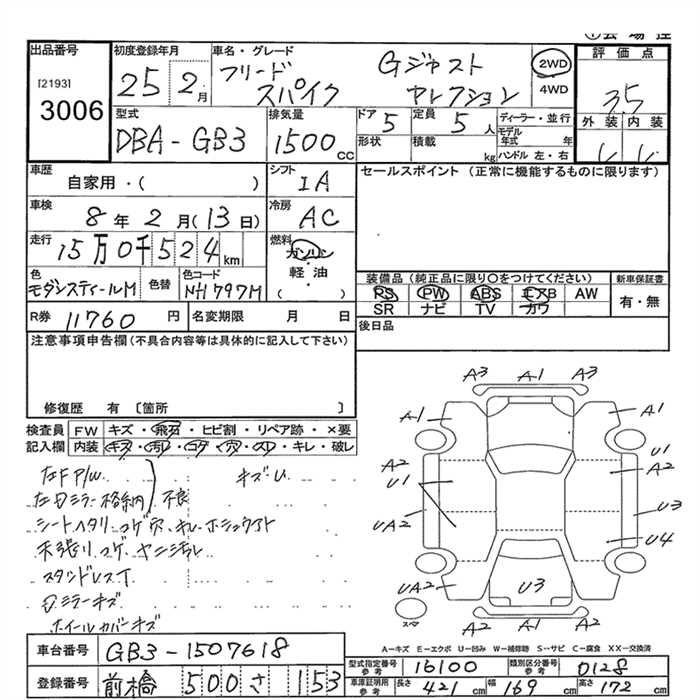 出品番号
[2193]
3006
初度登録年月
25 2月
車名・グレード
フリード スパイク
Gジャスト セレクション
2WD
4WD
評価点
3.5
外装 内装
型式
DBA-GB3
排気量
1500cc
ドア 5
形状
定員 5人
積載 kg
ディーラー・並行
モデル年式 年
ハンドル 左・右
車歴
自家用・( )
シフト
IA
セールスポイント (正常に機能するものに限ります)
車検
8年2月(13日)
冷房
AC
走行
15万0千524km
燃料
ガソリン
軽油
( )
色
モダンスティールM
色替
色コード
NH797M
装備品 (純正品に限り〇をつけてください)
新車保証書
PS PW ABS エアB AW
SR ナビ TV カワ
有・無
R券 11760円
名変期限 月 日
後日品
注意事項申告欄(不具合内容等は具体的に記入して下さい)
修復歴 有 〔箇所 〕
検査員記入欄
FW キズ・飛石・ヒビ割・リペア跡・×要
内装 キズ・汚レ・コゲ・穴・スレ・キレ・破レ
左F P/W
キズU
不良
シートヘタリ コゲ穴 キレ ホシュウアト
天張り コゲ ヤニ汚レ
スタンドレスT
ホイールカバーキズ
A3 A1 A3
A1 A1
A2 U1
U1 A2
UA2 U3
U4
UA2 U3 A2
スペア
A2 A1 A2
A-キズ E-エクボ U-凹み W-補修跡 S-サビ C-腐食 XX-交換済
車台番号
GB3-1507618
型式指定番号 参考
16100
類別区分番号 参考
0128
登録番号
前橋 500 さ 153
車庫証明用 参考
長さ 421cm
幅 169cm
高さ 172cm